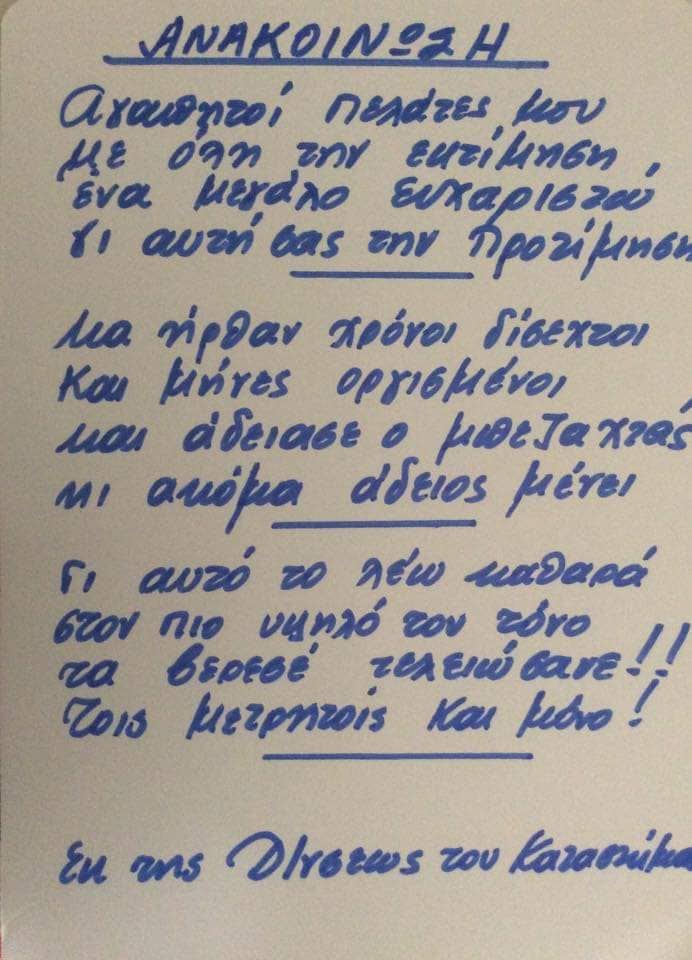 ΑΝΑΚΟΙΝΩΣΗ
Αγαπητοί πελάτες μου
με όλη την εκτίμηση,
ένα μεγάλο ευχαριστώ
γι αυτή σας την προτίμηση
Μα ήρθαν χρόνοι δίσεχτοι
και μήνες οργισμένοι
και άδειασε ο μπεζαχτάς
κι ακόμα άδειος μένει
Γι αυτό το λέω καθαρά
στον πιο υψηλό τον τόνο
τα βερεσέ τελειώσανε!!
Τοις μετρητοίς και μόνο!
Εκ της Δ/νσεως του Καταστήμα